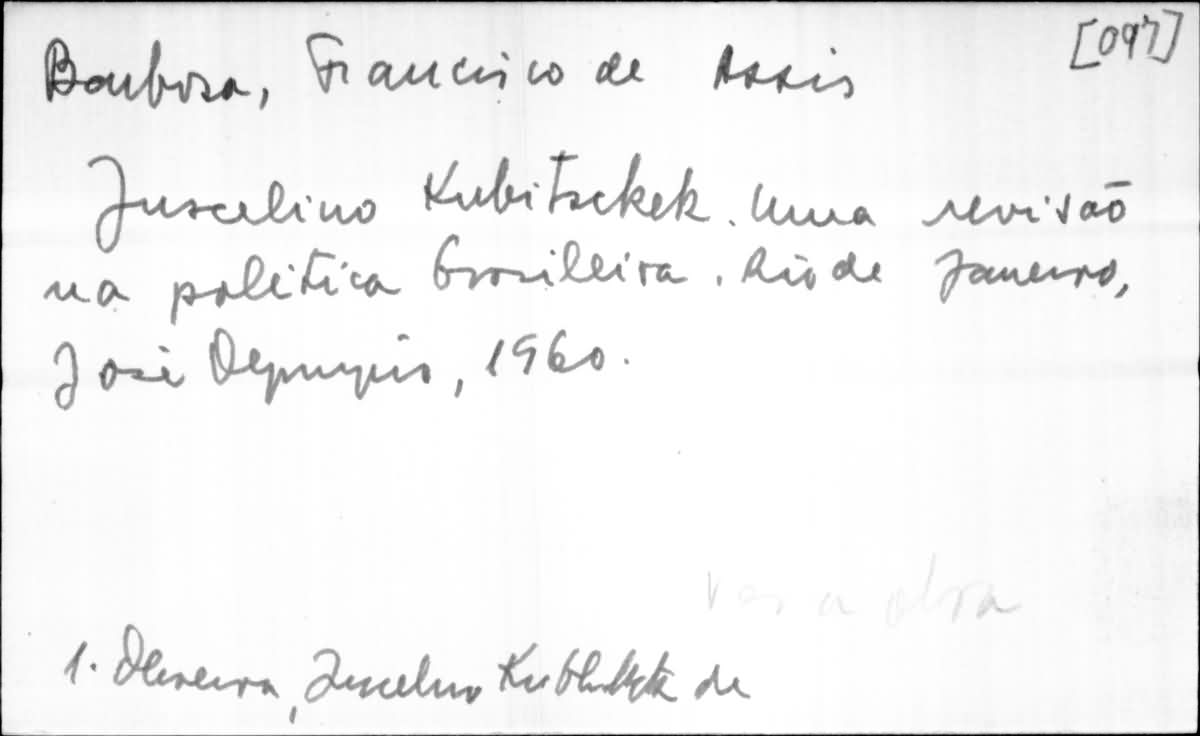 [097]
Barbosa, Francisco de Assis
Juscelino Kubitschek. Uma revisão
na política brasileira. Rio de Janeiro,
José Olympio, 1960.
Ver a obra
1. Oliveira, Juscelino Kubitschek de